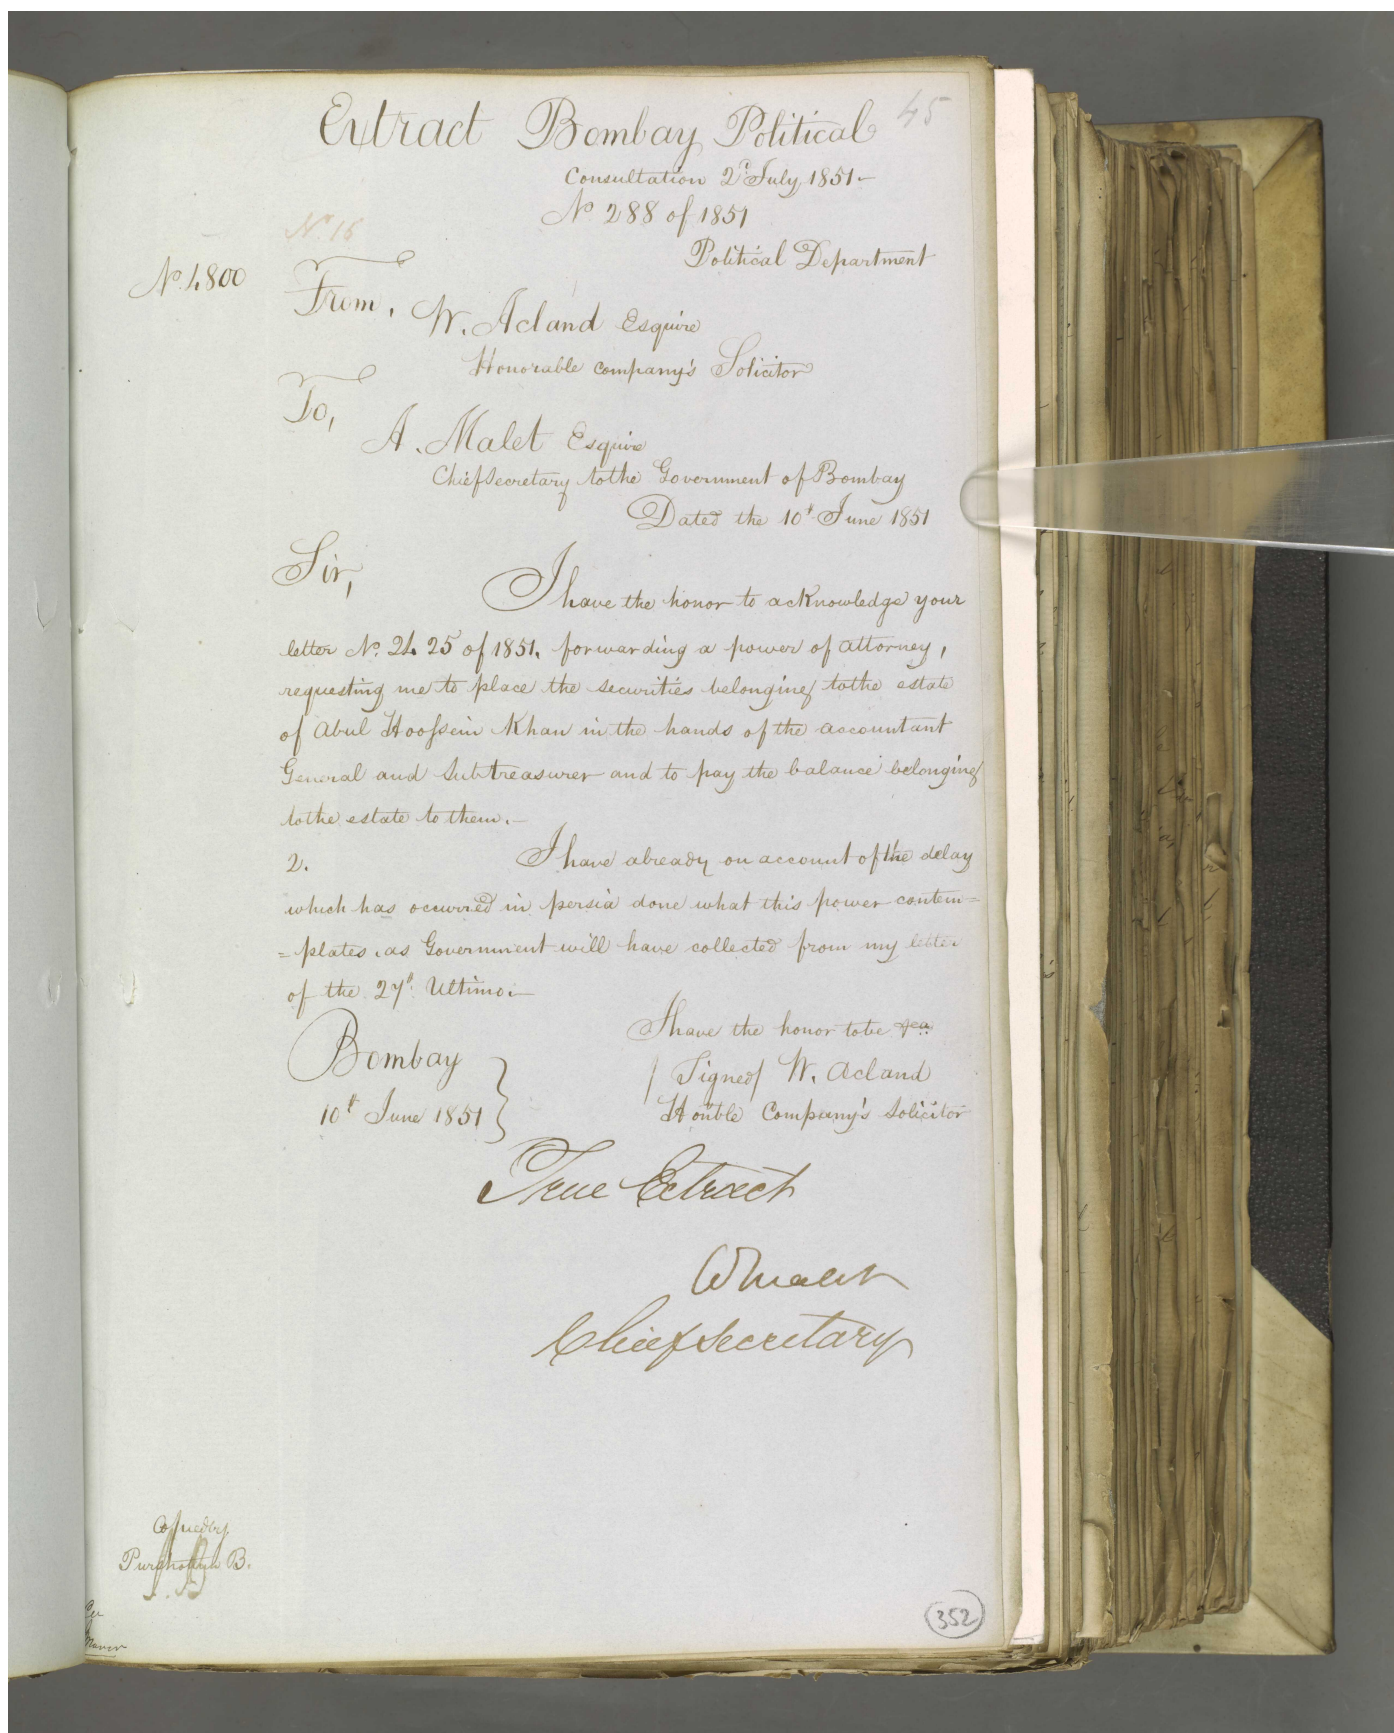 45
Extract Bombay Political
Consultation 2d July 1851-
No 288 of 1851
No. 18
Political Department
No. 4800
From,
W. Acland Esquire
Honorable company's Solicitor
To,
A. Malet Esquire
Chief Secretary to the Government of Bombay
Dated the 10th June 1851
Sir,
I have the honor to acknowledge your
letter No. 2425 of 1851. forwarding a power of attorney,
requesting me to place the securities belonging to the estate
of Abul Hoossein Khan in the hands of the accountant
General and Subtreasurer and to pay the balance belonging
to the estate to them.-
2. I have already on account of the delay
which has occurred in persia done what this power contem=
=plates, as Government will have collected from my letter
of the 27th Ultimo.-
I have the honor to be &ca.
Bombay
10th June 1851
Signed W. Acland
Honble Company's Solicitor
True Extract
Malet
Chief Secretary
Copied by
B.
352